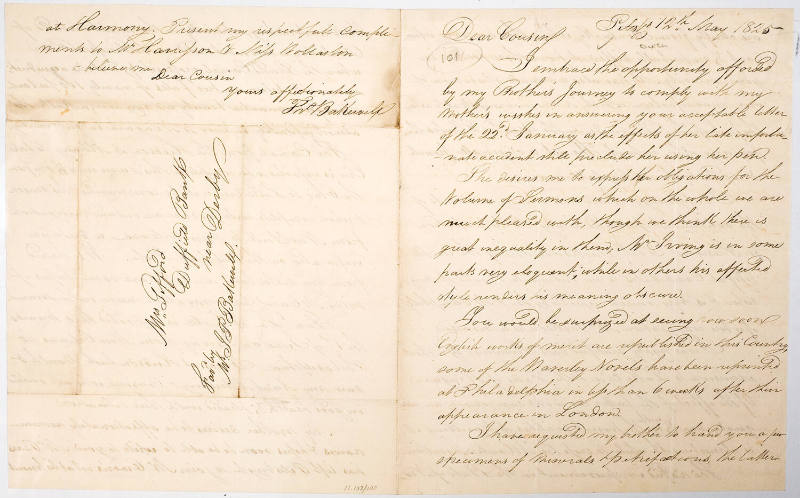 at Harmony. Present my respectful comple
ments to Mr Harrisson & Miss Wollaston
believe me
Dear Cousin
Yours affectionately
Thos Bakewell
Mrs Pifford
Duffield Bank
near Derby
Fav'd by
Mr J. P. Bakewell.
Dear Cousin
Pittsbg 12th May 1825
101
I embrace the opportunity afforded
by my Brothers Journey to comply with my
Mother's wishes in answering your acceptable letter
of the 22d January as the effects of her late unfortu
nate accident still preclude her using her pen.
She desires me to express her obligations for the
Volume of Sermons which on the whole we are
much pleased with, though we think there is
great inequality in them, Mr Irving is in some
parts very eloquent, while in others his affected
style renders his meaning obscure.
You would be surprized at seeing how soon
English works of merit are republished in this Country,
some of the Waverley Novels have been reprinted
at Philadelphia in less than 6 weeks after their
appearance in London.
I have requested my brother to hand you a few
specimens of Minerals & Petrifactions, the latter